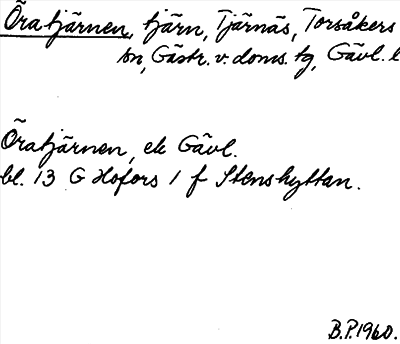 Öratjärnen, tjärn, Tjärnäs, Torsåkers
sn, Gästr. v. doms. tg, Gävl. l
Öratjärnen, ek Gävl.
bl. 13 G Hofors 1 f Stenshyttan.
B.P. 1960.